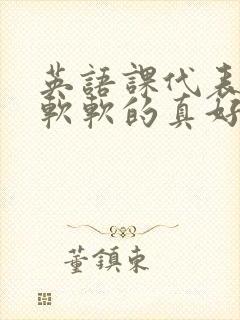 英語課代表
軟軟的真好
董鎮東